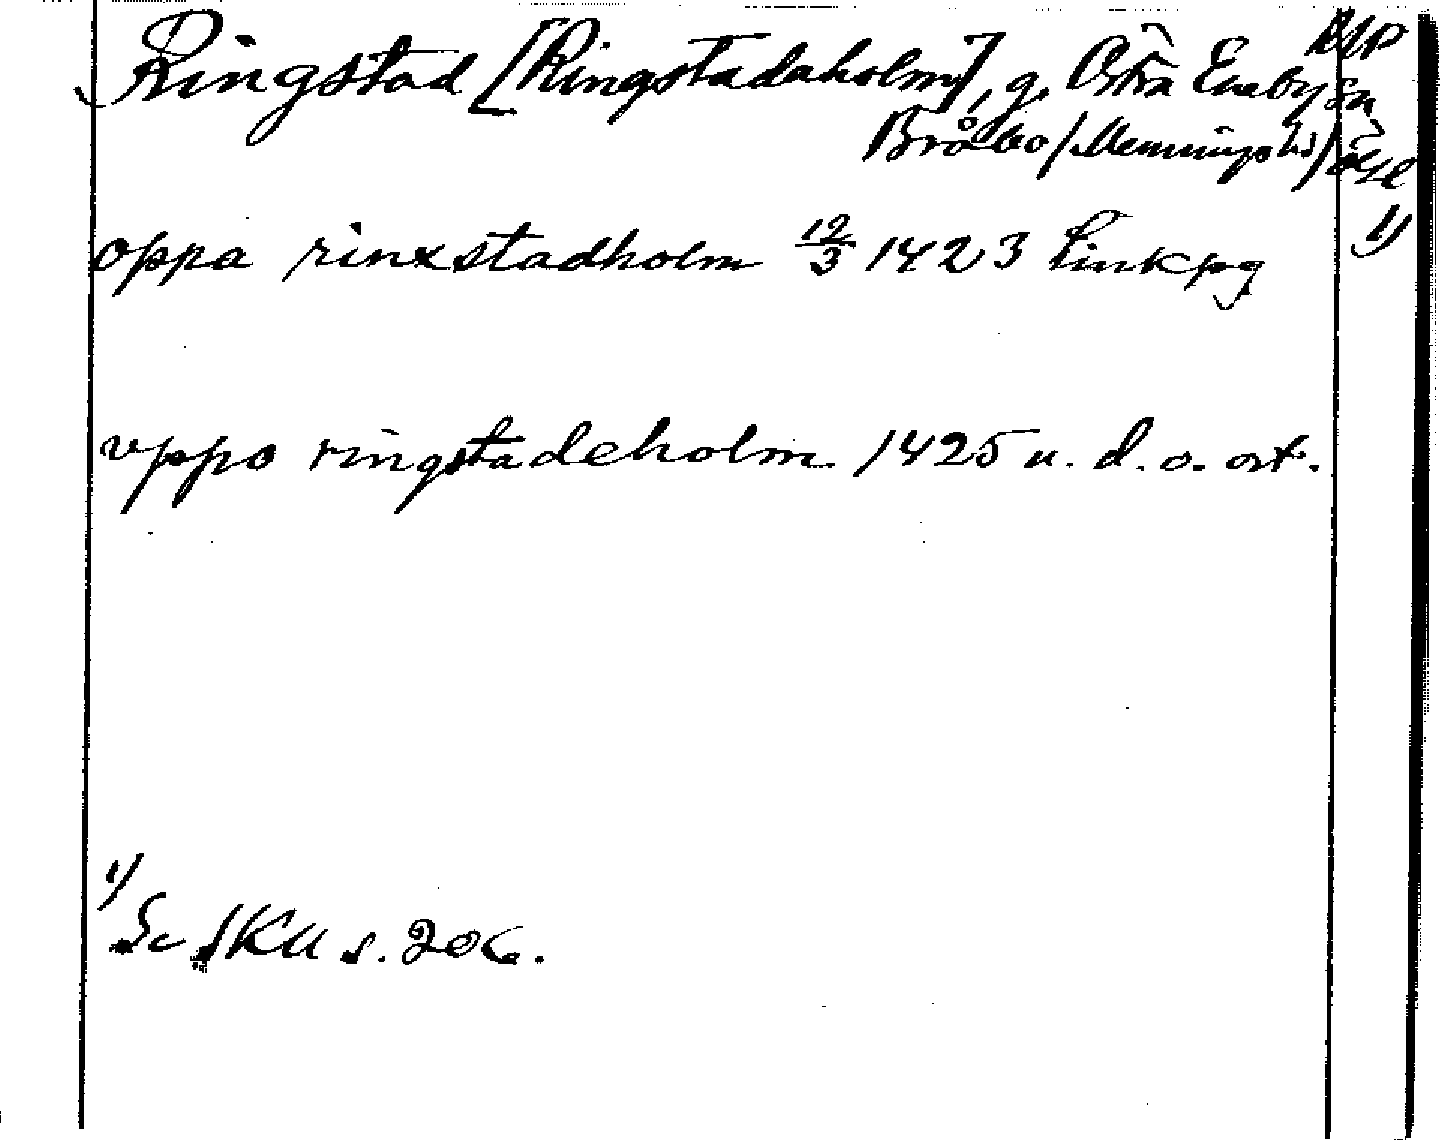 Ringstad [Ringstadaholm], g. Östra Eneby sn
Bråbo /Memmings hd/ Ögl
oppa rinxstadholm 12/3 1423 Linkpg 1)
vppo ringstadeholm 1425 u. d. o. ort.
1)
Se SKU s. 206.